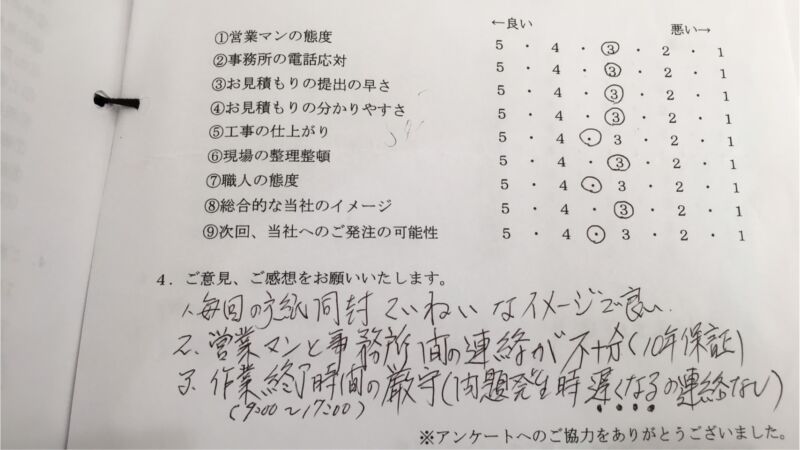 ←良い 悪い→
①営業マンの態度 5 ・ 4 ・ ③ ・ 2 ・ 1
②事務所の電話応対 5 ・ 4 ・ ③ ・ 2 ・ 1
③お見積もりの提出の早さ 5 ・ 4 ・ ③ ・ 2 ・ 1
④お見積もりの分かりやすさ 5 ・ 4 ・ ③ ・ 2 ・ 1
⑤工事の仕上がり 5 ・ 4 ・ 3 ・ 2 ・ 1
⑥現場の整理整頓 5 ・ 4 ・ ③ ・ 2 ・ 1
⑦職人の態度 5 ・ 4 ・ 3 ・ 2 ・ 1
⑧総合的な当社のイメージ 5 ・ 4 ・ ③ ・ 2 ・ 1
⑨次回、当社へのご発注の可能性 5 ・ 4 ・ 3 ・ 2 ・ 1
4．ご意見、ご感想をお願いいたします。
1、毎回の手紙同封ていねいなイメージで良い
2、営業マンと事務所間の連絡が不十分(10年保証)
3、作業終了時間の厳守(問題発生時遅くなるの連絡なし)
(9:00～17:00)
※アンケートへのご協力をありがとうございました。